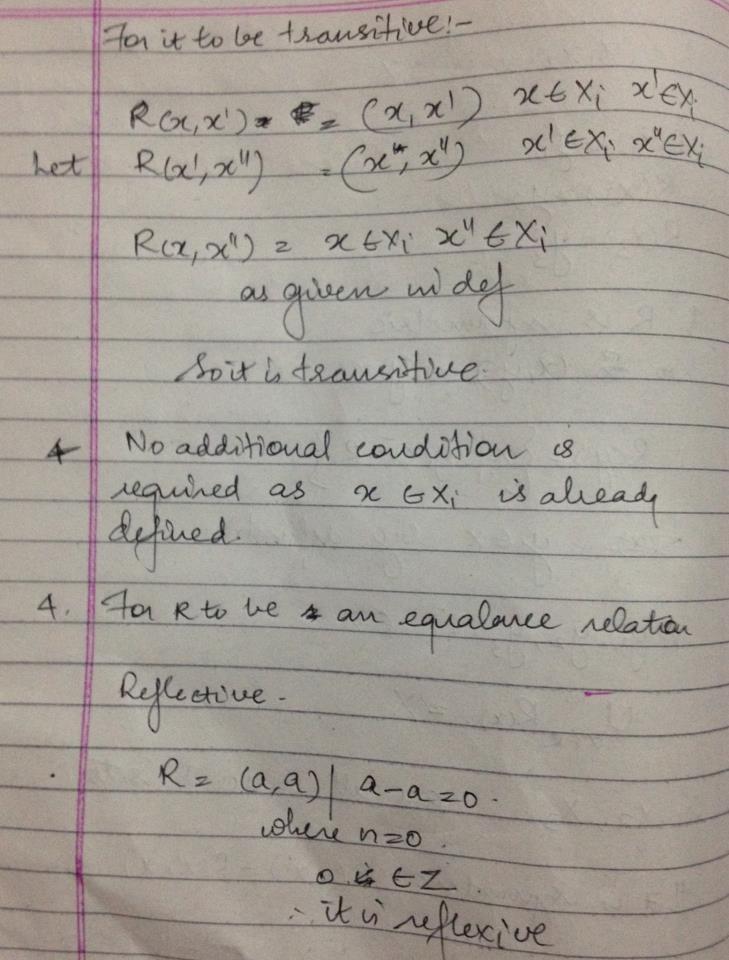 For it to be transitive:-
R(x,x') = (x, x') x ∈ Xi x' ∈ Xi
Let R(x',x'') = (x'', x'') x' ∈ Xi x'' ∈ Xi
R(x,x'') = x ∈ Xi x'' ∈ Xi
as given in def
So it is transitive.
No additional condition is
required as x ∈ Xi is already
defined.
4. For R to be an equalance relation
Reflective -
R = (a,a) | a-a=0.
where n=0.
0 ∈ Z.
∴ it is reflexive